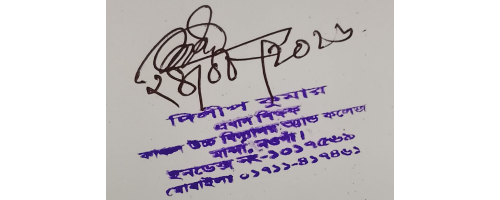 ২৪/০৪/২০২১
দিলীপ কুমার
প্রধান শিক্ষক
উচ্চ বিদ্যালয় অ্যান্ড কলেজ
মান্দা, নওগাঁ।
ইনডেক্স নং-১০১৭৫৬৯
মোবাইলঃ ০১৭১১-৪১৭৪৬১